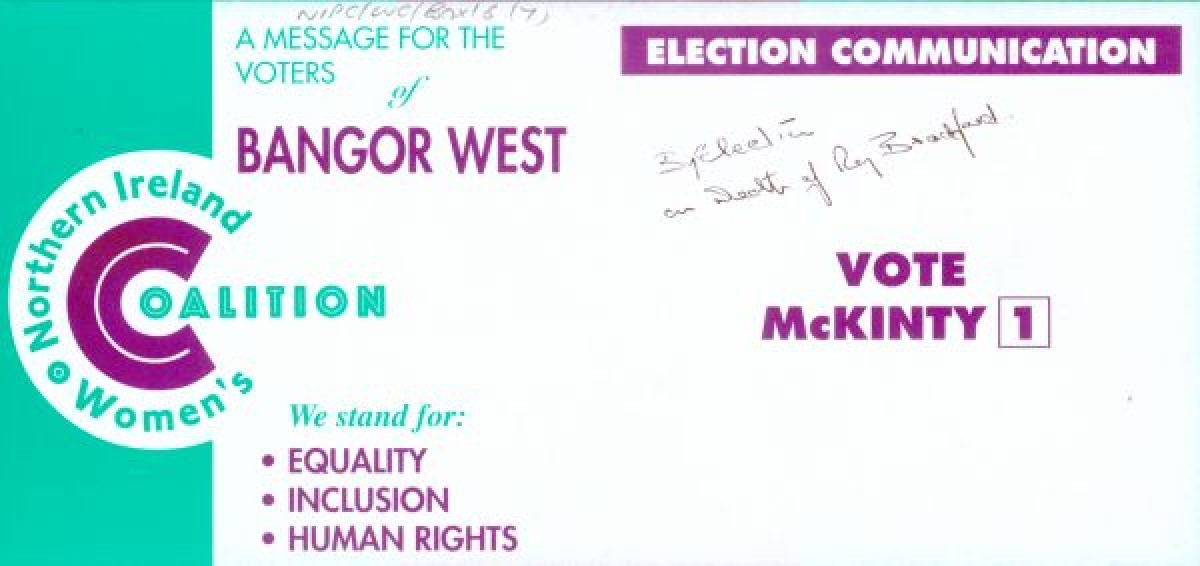 A MESSAGE FOR THE
VOTERS
of
BANGOR WEST
Northern Ireland
Women's
COALITION
We stand for:
• EQUALITY
• INCLUSION
• HUMAN RIGHTS
ELECTION COMMUNICATION
ByElection
on Death of Roy Bradford.
VOTE
McKINTY 1